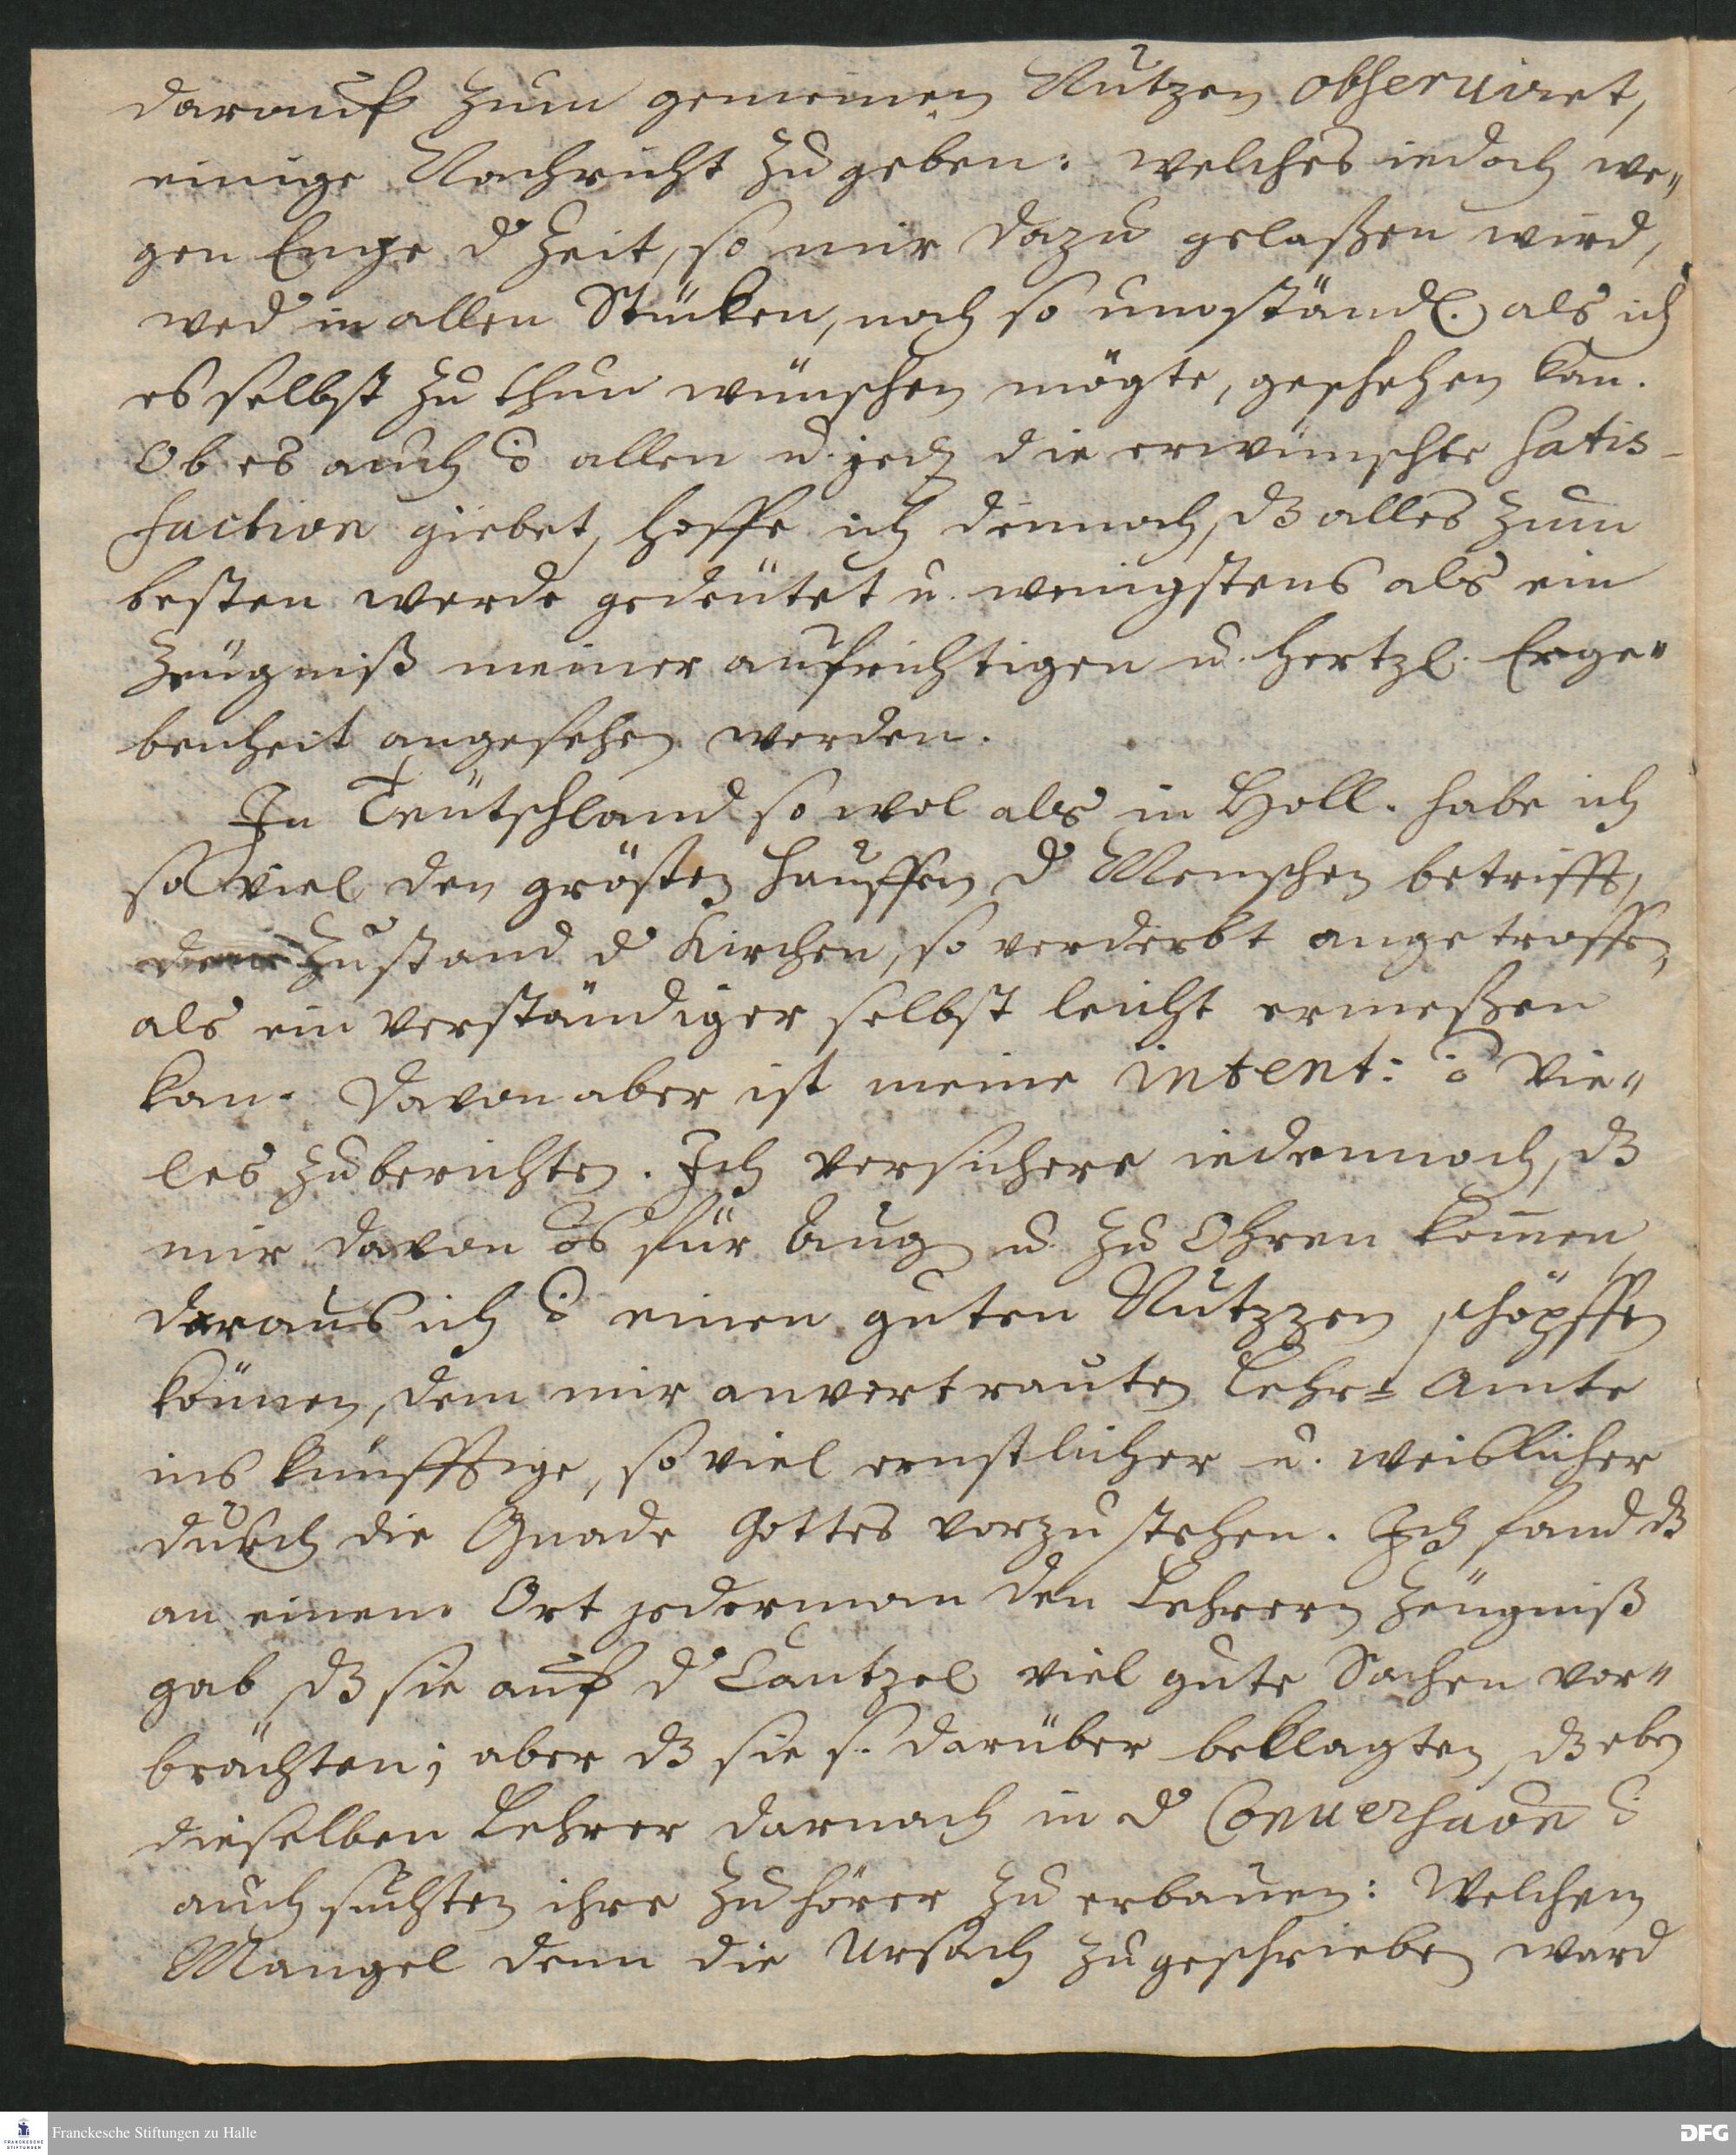 darauf zum gemeinen Nutzen observiret,
einige Nachricht zu geben: welches iedoch we-
gen Enge d Zeit, so mir dazu gelaßen wird,
wed in allen Stücken, noch so umständl. als ich
es selbst zu thun wünschen mögte, geschehen kan.
Ob es auch allen u. jedn die erwünschte satis-
faction giebet, hoffe ich dennoch, dz alles zum
besten werde gedeütet u. wenigstens als ein
Zeügniß meiner aufrichtigen u. hertzl. Erge-
benheit angesehen werden.
In Teütschland so wol als in Holl. habe ich
so viel den grösten Hauffen d Menschen betrifft,
den Zustand d Kirchen, so verderbt angetroffen,
als ein verständiger selbst leicht ermeßen
kan. Davon aber ist meine intent: vie-
les zu berichten. Ich versichere iedennoch, dz
mir davon für Augen u. zu Ohren kom̅en,
daraus ich einen guten Nutzzen schöpffen
können, dem mir anvertrauten Lehr-Amte
ins künfftige, so viel ernstlicher u. weißlicher
durch die Gnade Gottes vorzustehen. Ich fand dz
an einem Ort jederman den Lehrern Zeügniß
gab, dz sie auf d Cantzel viel gute Sachen vor-
brächten; aber dz sie s. darüber beklagten, dz eben
dieselben Lehrer darnach in d Conversaõn
auch suchten ihre Zuhörer zu erbauen: Welchem
Mangel denn die Ursach zugeschrieben ward
Franckesche Stiftungen zu Halle
DFG